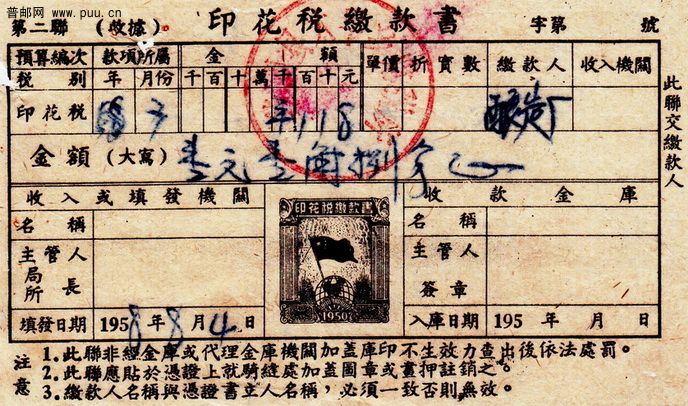 普邮网 www.puu.cn
第二聯 (收據) 印花税繳款書 字第 號
預算編次 款項所屬 金 額 單價 折實數 繳款人 收入機關
税别 年 月份 千 百 十 萬 千 百 十 元
印花税 118
金額(大寫) 壹元壹角捌分正
收入或填發機關 印花税繳款書 收款金庫
名稱 名稱
主管人 主管人
局所長 簽章
1950
填發日期 1958年8月4日 入庫日期 195 年 月 日
注意
1.此聯非經金庫或代理金庫機關加蓋庫印不生效力查出後依法處罰。
2.此聯應貼於憑證上就騎縫處加蓋圖章或畫押註銷之。
3.繳款人名稱與憑證書立人名稱，必須一致否則無效。
此聯交繳款人